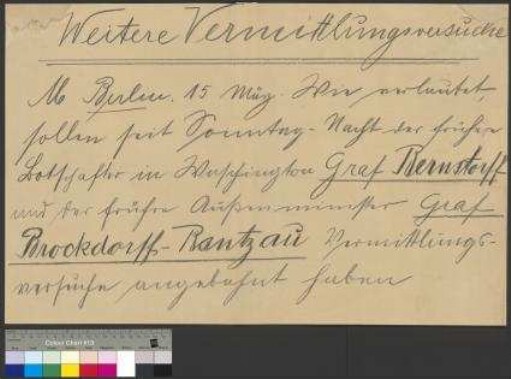 Weitere Vermittlungsversuche
Berlin. 15 März. Wie verlautet,
sollen seit Sonntag-Nacht der frühere
Botschafter in Waschington Graf Bernstorff
und der frühre Außenminister Graf
Brockdorff-Rantzau Vermittlungs-
versuche angebahnt haben